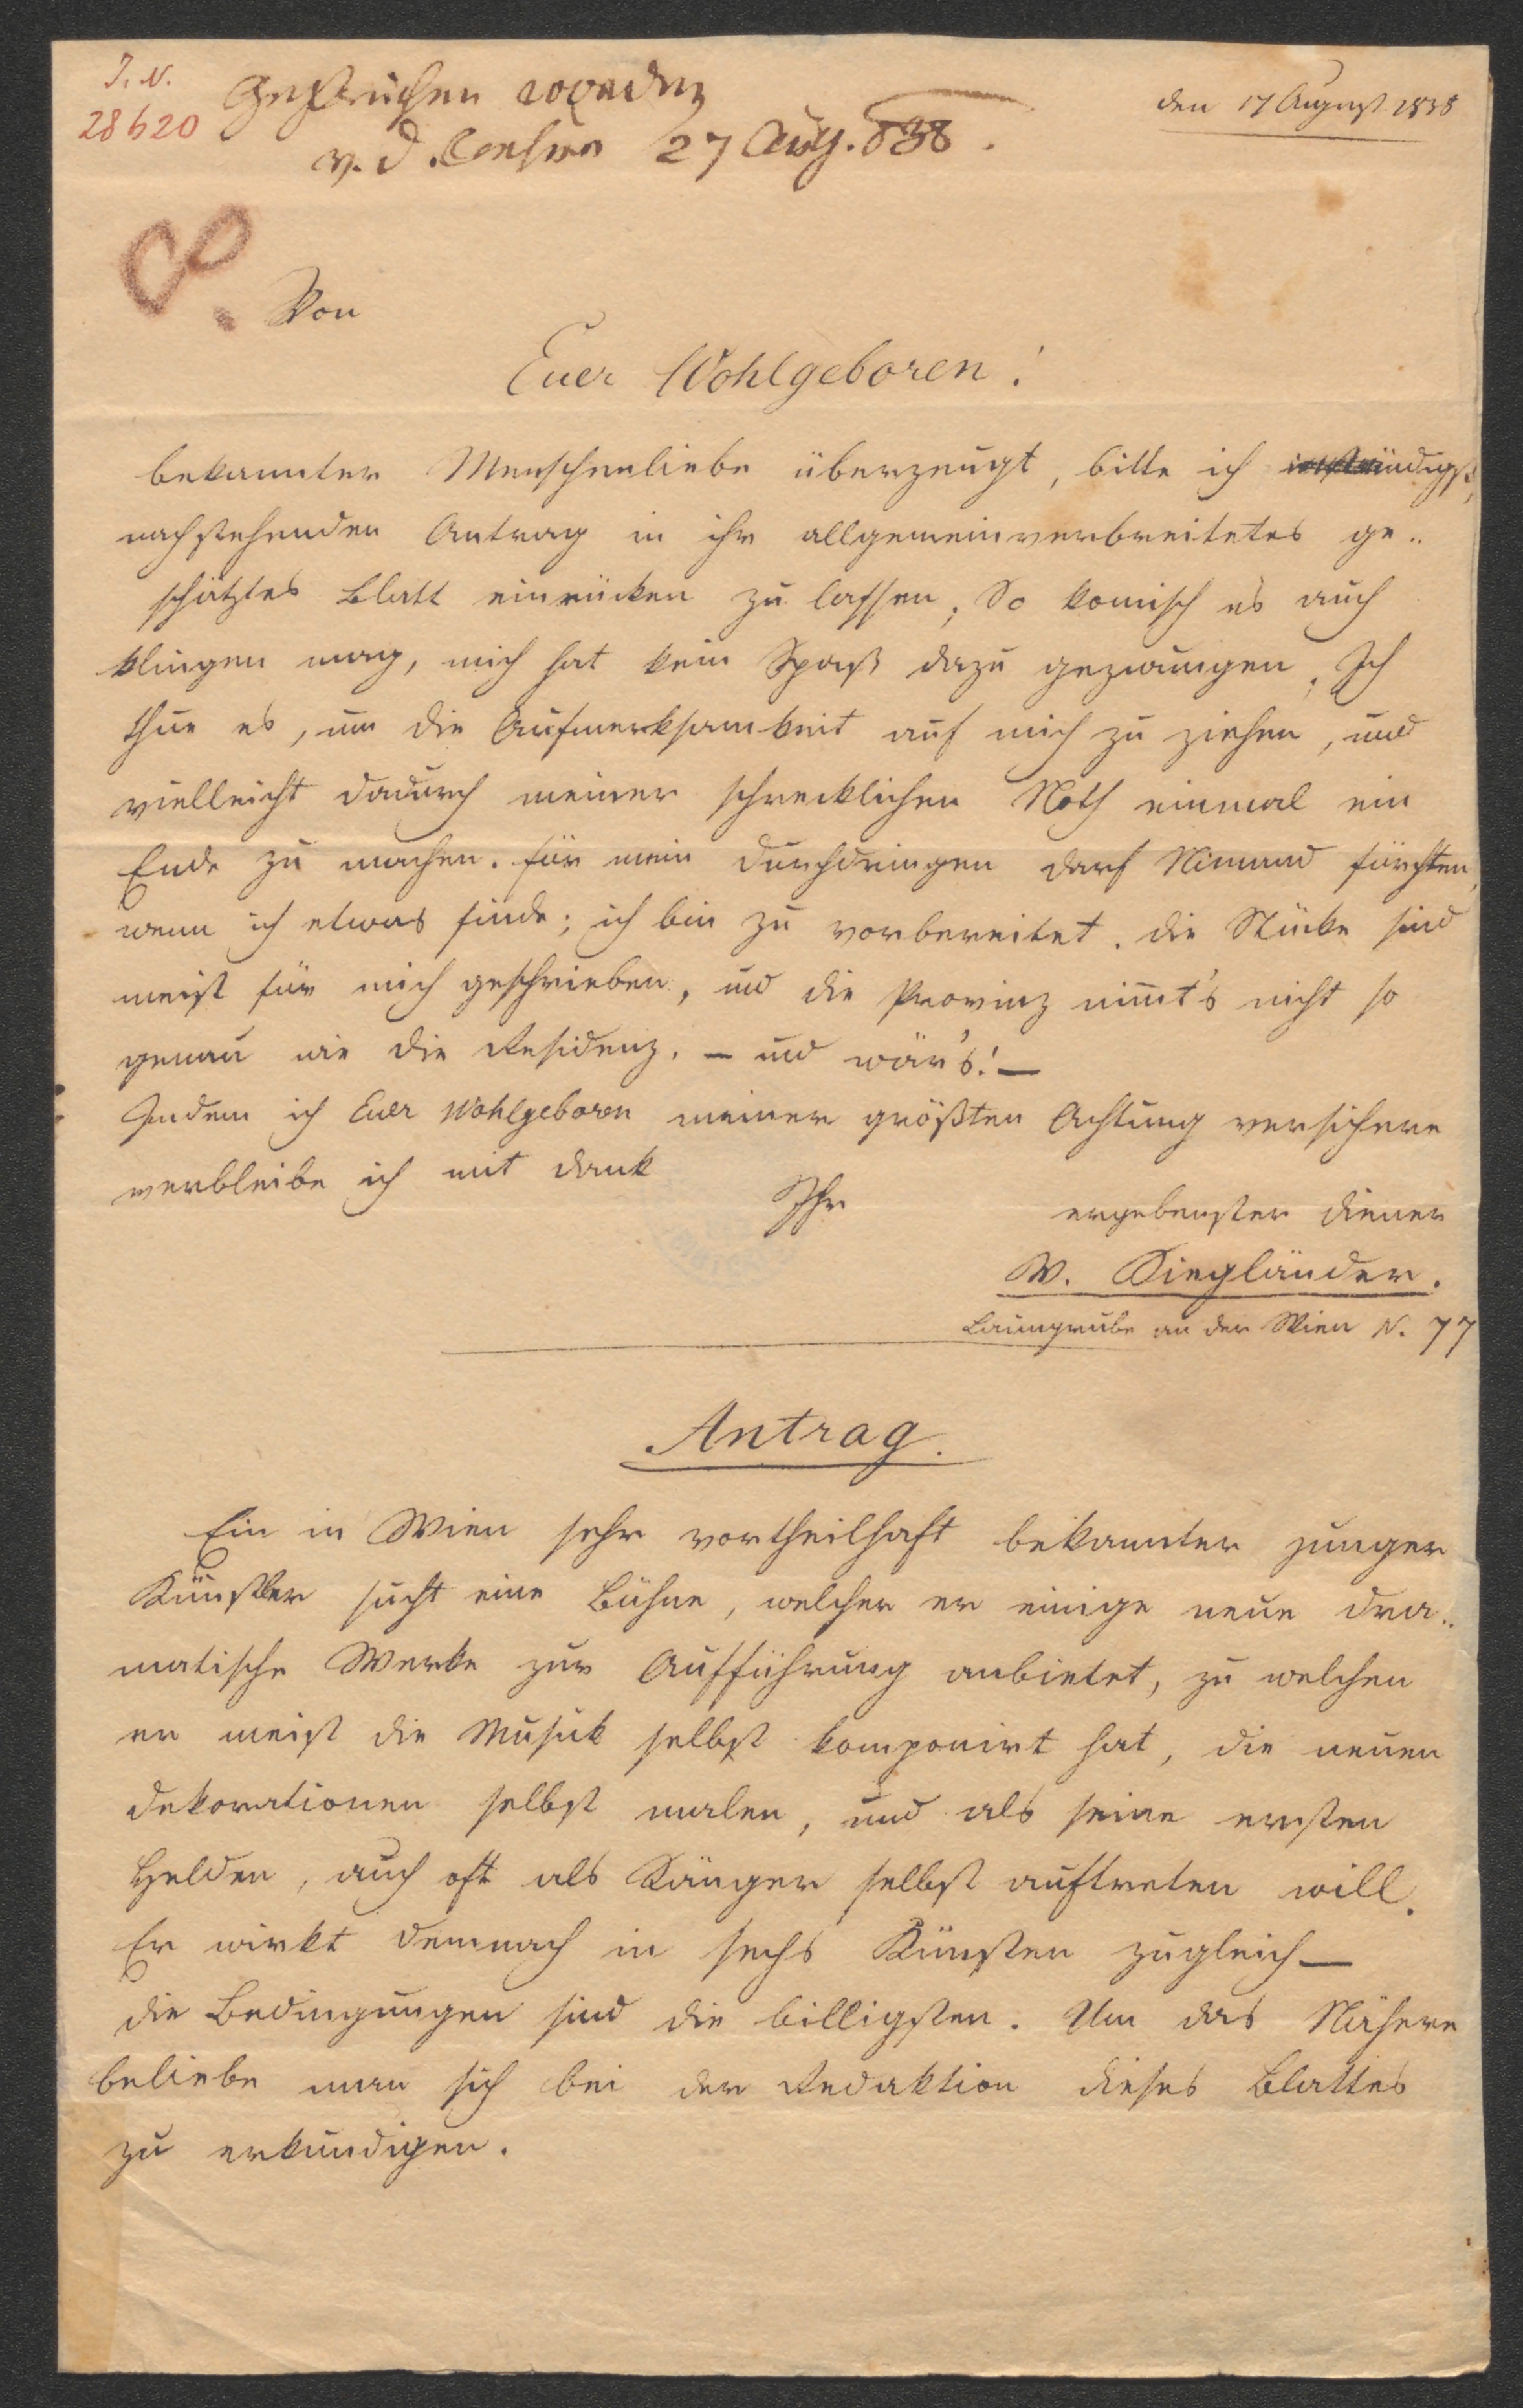 J. N.
28620
Gestrichen worden
v. d. Censur 27 Aug. 838.
den 17 August 1838
Von
Euer Wohlgeboren!
bekannter Menschenliebe überzeugt, bitte ich inständigst,
nachstehenden Antrag in ihr allgemeinverbreitetes ge-
schätztes Blatt einrücken zu lassen. So komisch es auch
klingen mag, mich hat kein Spaß dazu gezwungen. Ich
thue es, um die Aufmerksamkeit auf mich zu ziehen, und
vielleicht dadurch meiner schrecklichen Noth einmal ein
Ende zu machen. für mein Durchdringen darf Niemand fürchten,
wenn ich etwas finde; ich bin zu vorbereitet. die Stücke sind
meist für mich geschrieben, und die Provinz nimt's nicht so
genau wie die Residenz. – und wär's! –
Indem ich Euer Wohlgeboren meiner größten Achtung versichere
verbleibe ich mit Dank
Ihr
ergebenster Diener
W. Siegländer.
Laimgrube an der Wien N. 77
Antrag.
Ein in Wien sehr vortheilhaft bekannter junger
Künstler sucht eine Bühne, welcher er einige neue dra-
matische Werke zur Aufführung anbietet, zu welchen
er meist die Musik selbst komponirt hat, die neuen
Dekorationen selbst malen, und als seine ersten
Helden, auch oft als Sänger selbst auftreten will.
Er wirkt demnach in sechs Künsten zugleich –
die Bedingungen sind die billigsten. Um das Nähere
beliebe man sich bei der Redaktion dieses Blattes
zu erkundigen.